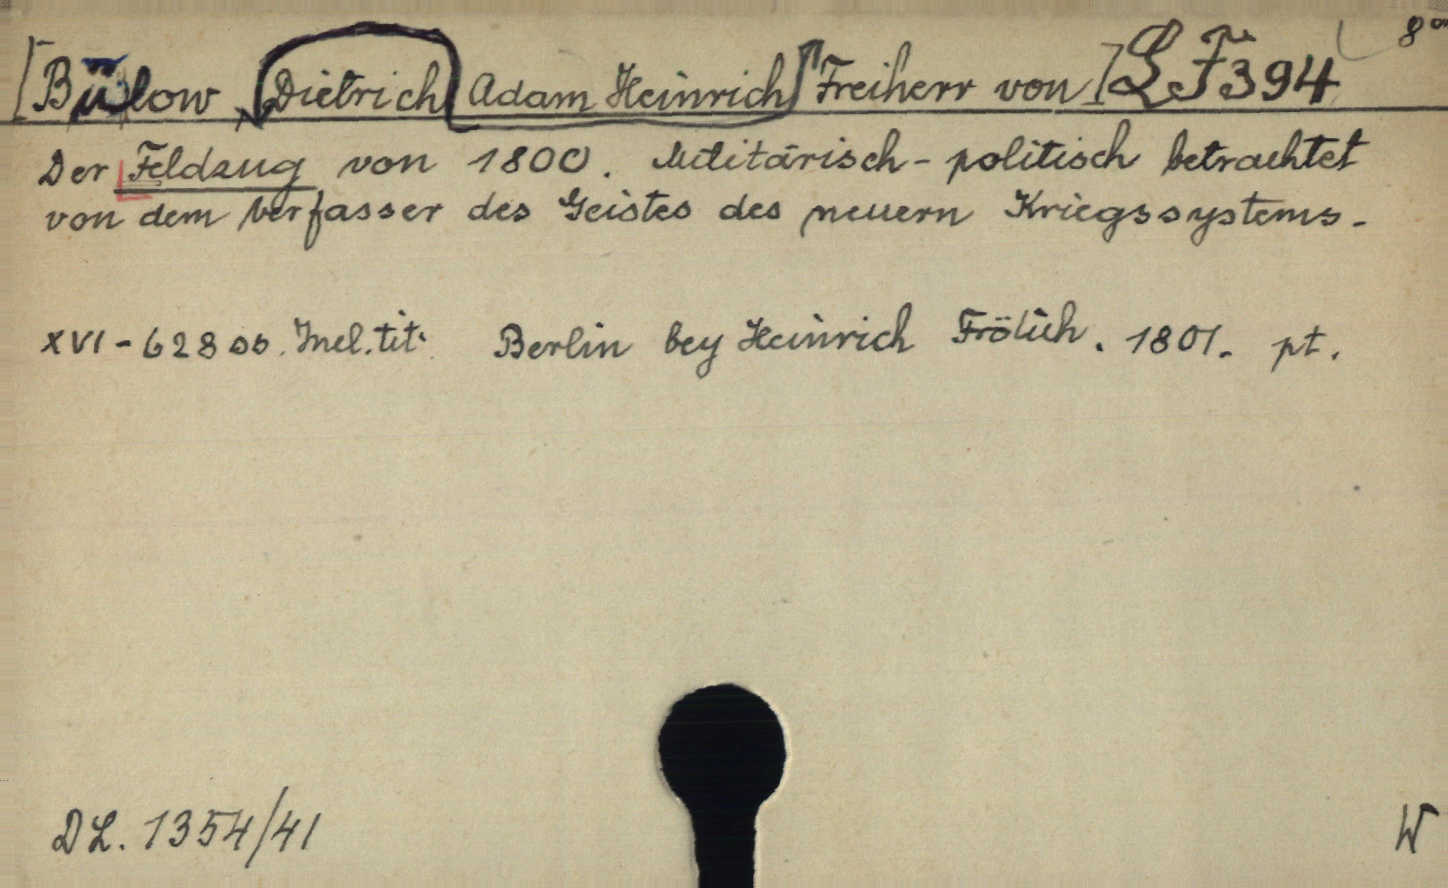 [Bülow, Dietrich Adam Heinrich Freiherr von] LF̃394 8°
Der Feldzug von 1800. Militärisch-politisch betrachtet
von dem Verfasser des Geistes des neuern Kriegssystems.
XVI-628 ss. Incl. tit. Berlin bey Heinrich Frölich. 1801. pt.
DL. 1354/41 W